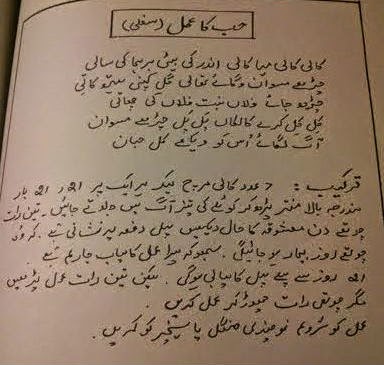 حب کا عمل (سفلی)
کالی کالی مہا کالی اندر کی بیٹی برہما کی سالی
چڑھے مسوان وگائے تھالی گل کٹنی سیتو کاتی
چڑھو جائے فلاں بنت فلاں کی چھاتی
کل کل کرے کالکاں پل پل چڑھے مسوان
آگ لگائے اُس کو دیکھے کل جہان
ترکیب: ۷ عدد کالی مرچ لیکر ہر ایک پر 21 و 21 بار
مندرجہ بالا منتر پڑھ کر کوئلے کی تیز آگ میں جلاتے جائیں۔ تین رات
چوتھے دن معشوقہ کا حال دیکھیں پہلی دفعہ پر نشانی ہے۔ کہ وہ
چوتھے روز بیمار ہو جائیگی۔ سمجھو کہ میرا عمل کامیاب جا رہا ہے
21 روز سے پہلے پہلے کامیابی ہوگی۔ لیکن تین رات عمل پڑھیں
مگر چوتھی رات چھوڑ کر عمل کریں۔
عمل کو شروع نوچندی منگل یا سنیچر کو کریں۔